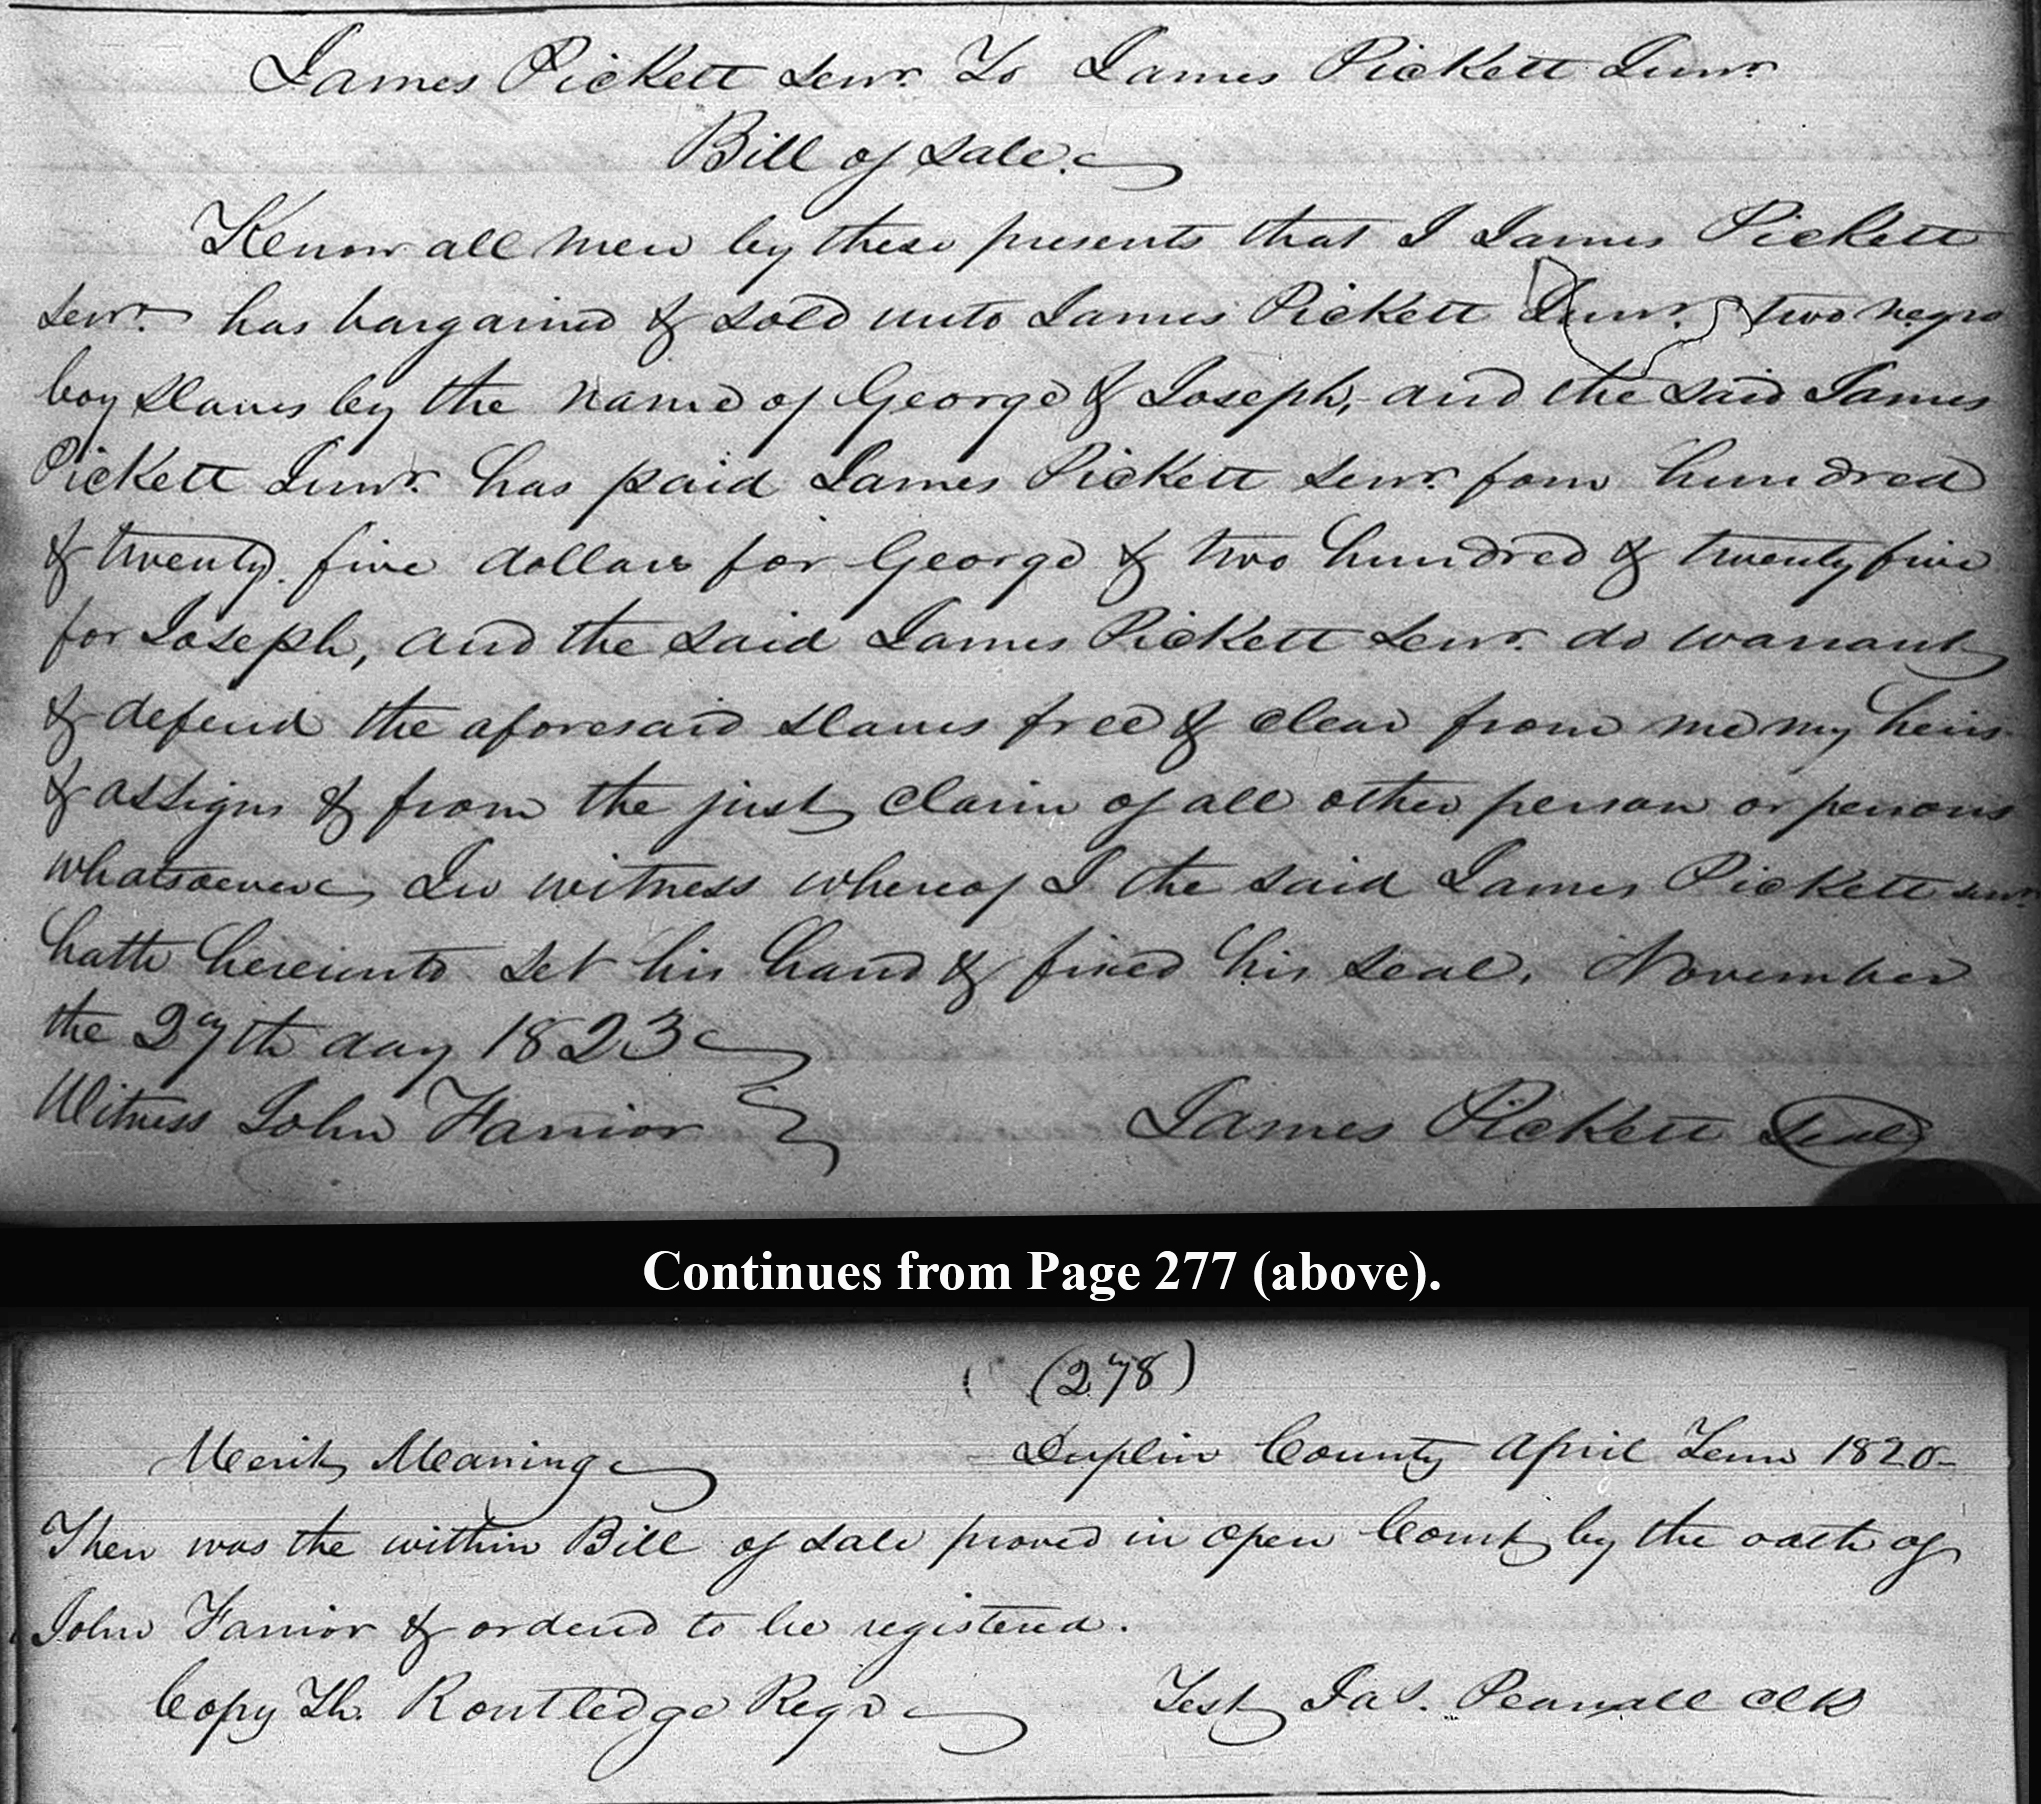 James Pickett Senr. To James Pickett Junr.
Bill of Sale.
Know all men by these presents that I James Pickett
Senr. has bargained & sold unto James Pickett Junr. two negro
boy slaves by the name of George & Joseph, and the said James
Pickett Junr. has paid James Pickett Senr. four hundred
& twenty five dollars for George & two hundred & twenty five
for Joseph, and the said James Pickett Senr. do warrant
& defend the aforesaid slaves free & clear from me my heirs
& assigns & from the just claim of all other person or persons
whatsoever In witness whereof I the said James Pickett Senr.
hath hereunto set his hand & fixed his seal, November
the 27th day 1823
Witness John Farrior James Pickett Seal
Continues from Page 277 (above).
(278)
Merit Manning Duplin County April Term 1820
Then was the within Bill of Sale proved in open Court by the oath of
John Farrior & ordered to be registered.
Copy Th. Routledge Regr Test Jas. Pearsall Clk